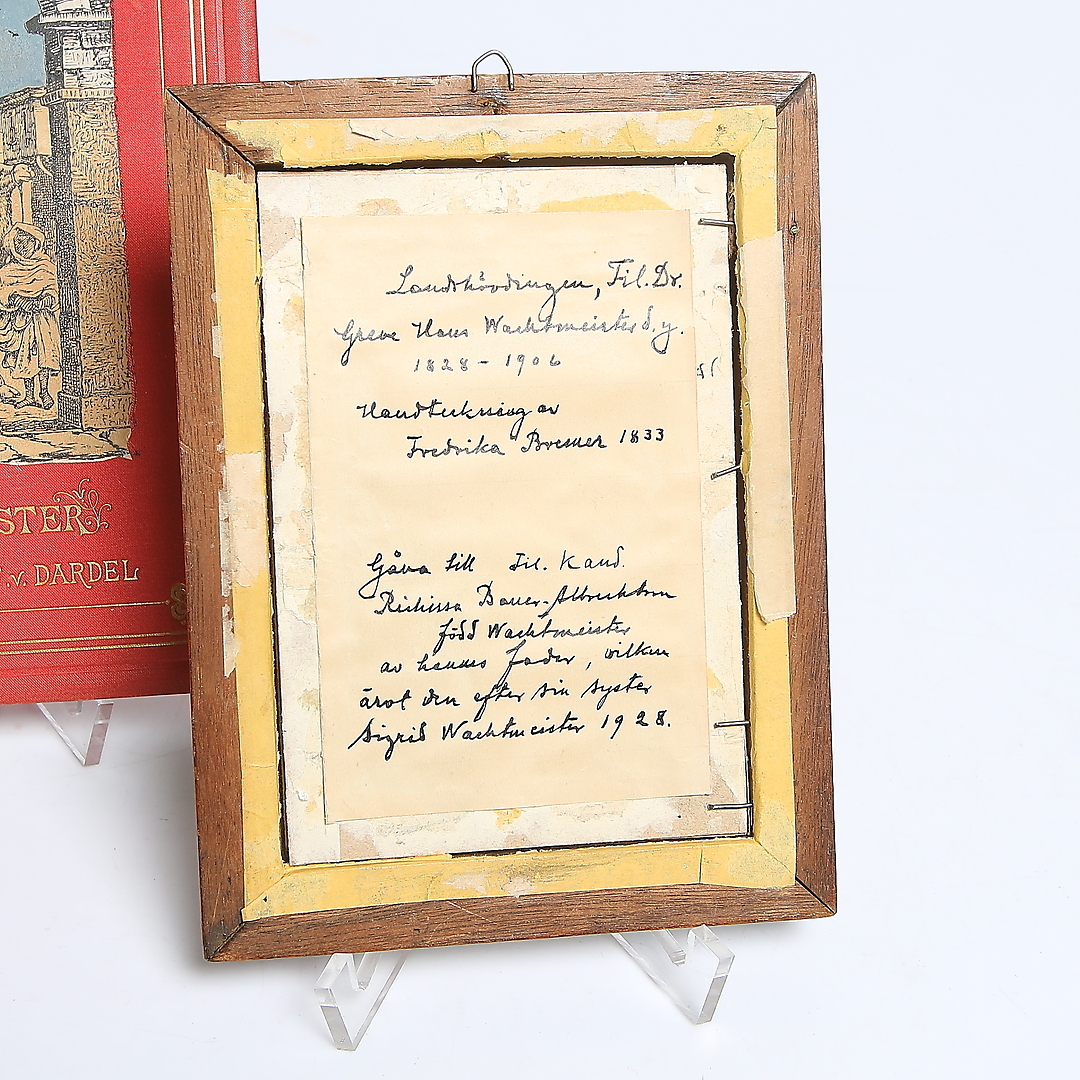 STER
v. DARDEL
Landshövdingen, Fil. Dr.
Greve Hans Wachtmeister d. y.
1828 – 1906
Handteckning av
Fredrika Bremer 1833
Gåva till Fil. Kand.
Bauer-Albrechtson
född Wachtmeister
av hennes fader, vilken
ärvt den efter sin syster
Sigrid Wachtmeister 1928.